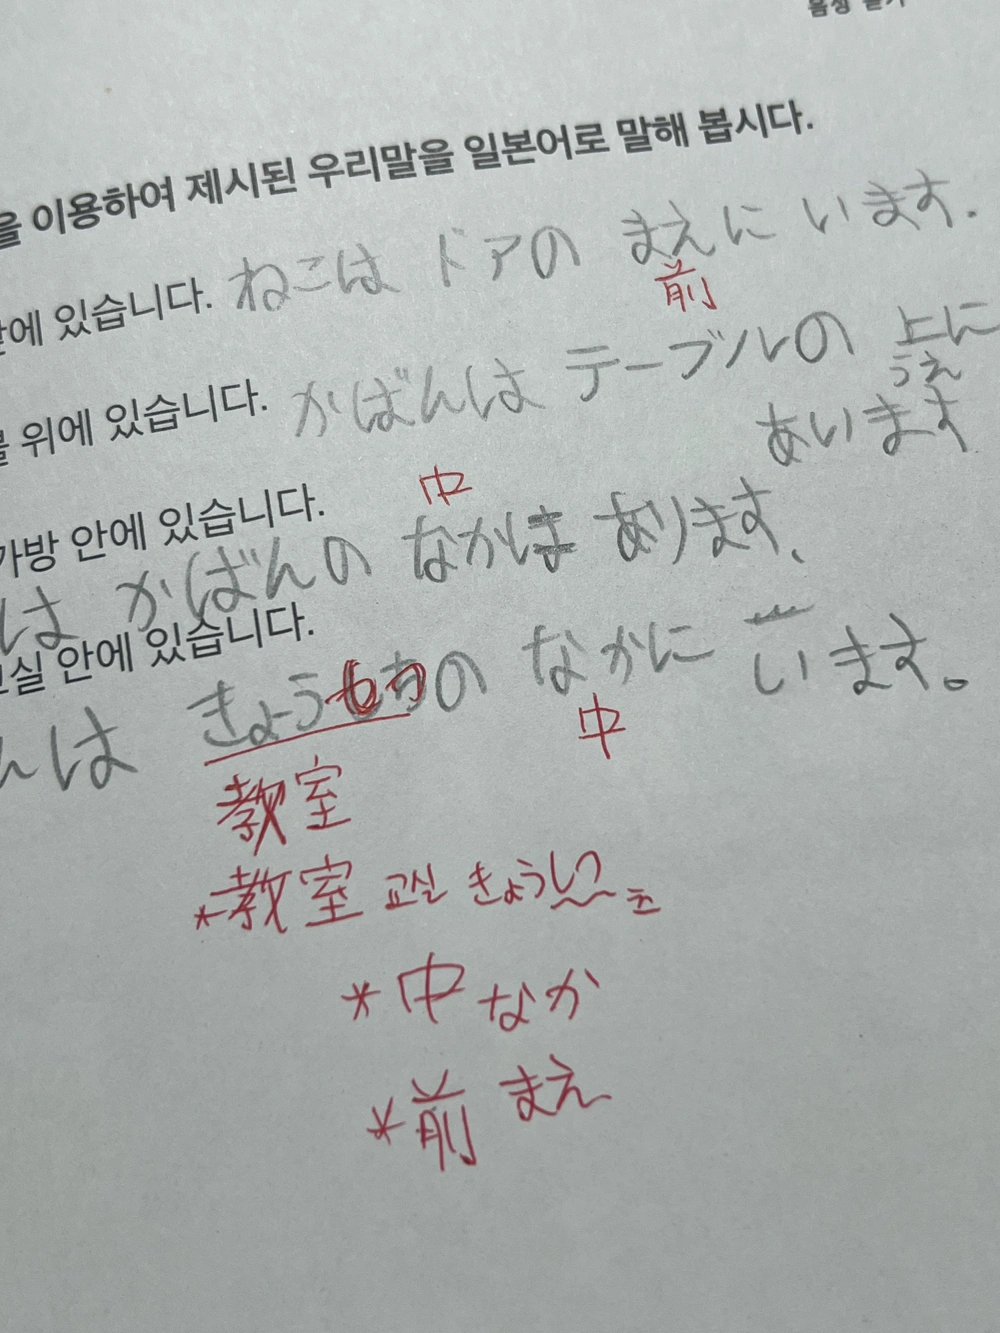 을 이용하여 제시된 우리말을 일본어로 말해 봅시다.
앞에 있습니다. ねこは ドアの まえに います.
前
위에 있습니다. かばんは テーブルの 上に
うえ
あいます
中
가방 안에 있습니다.
は かばんの なかは あります.
교실 안에 있습니다.
んは きょう の なかに います。
中
教室
*教室 교실 きょうしつ
*中 なか
*前 まえ